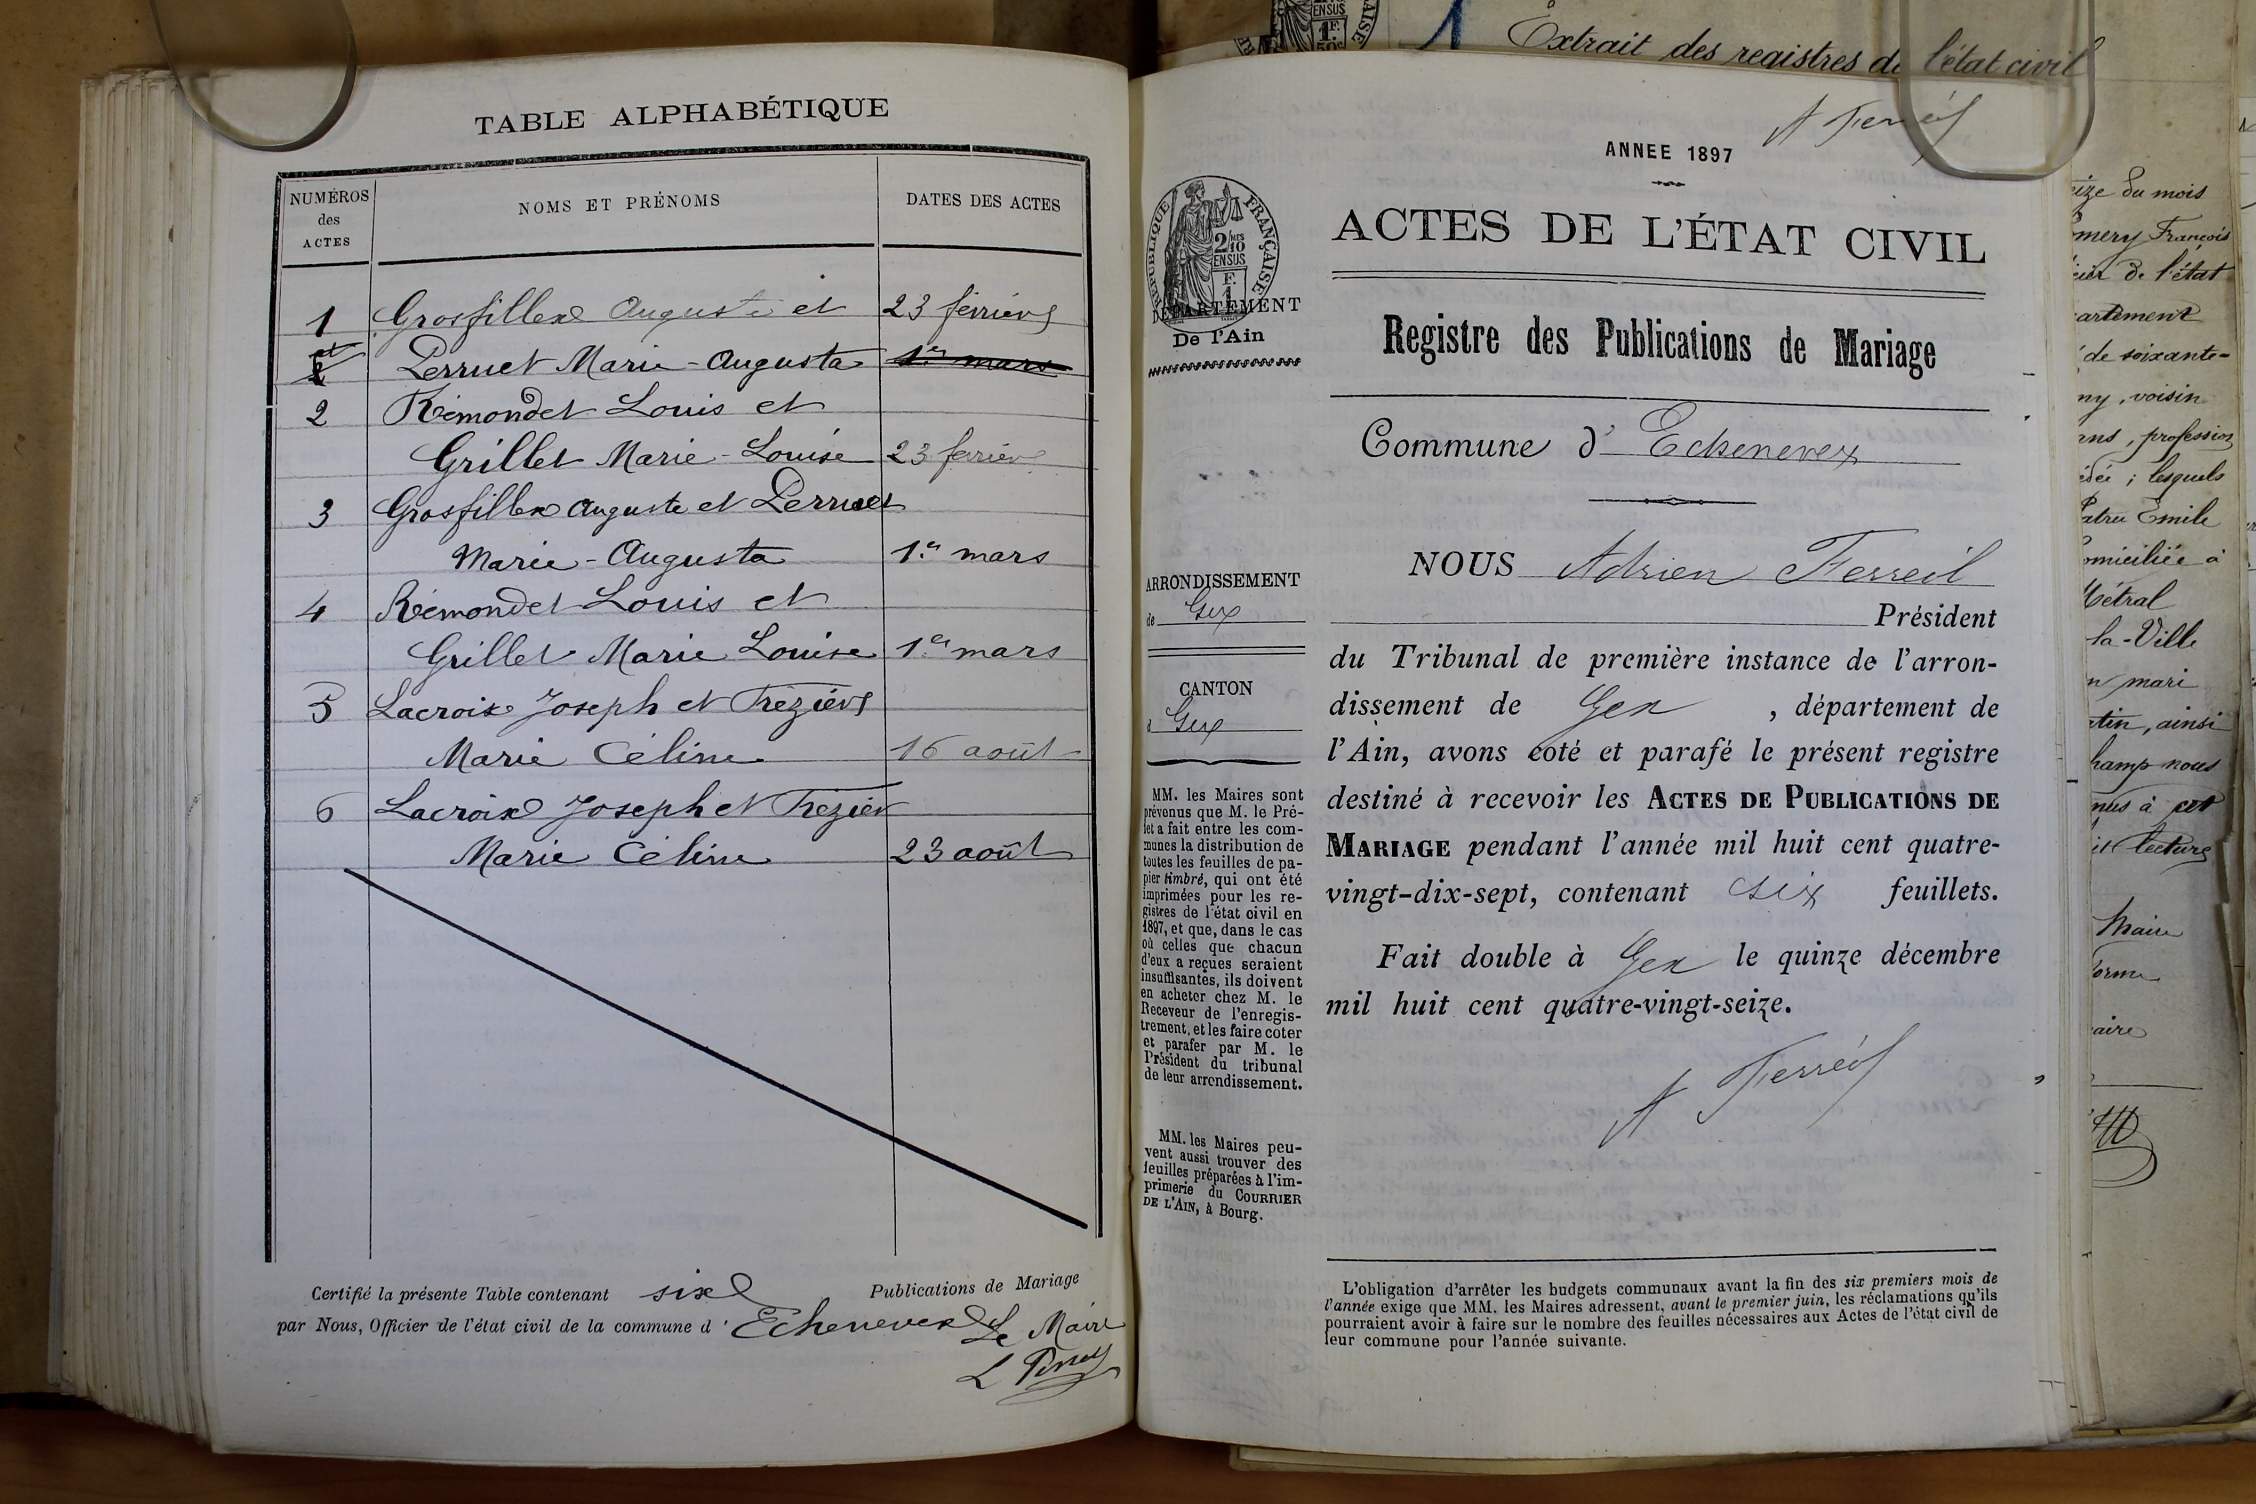 TABLE ALPHABÉTIQUE
NUMÉROS
des
ACTES
NOMS ET PRÉNOMS
DATES DES ACTES
1 Grosfillex Auguste et 23 février
et
2 Perruet Marie-Augusta 1er mars
2 Rémondet Louis et
Grillet Marie-Louise 23 février
3 Grosfillex Auguste et Perruet
Marie-Augusta 1er mars
4 Rémondet Louis et
Grillet Marie Louise 1er mars
5 Lacroix Joseph et Trézier
Marie Céline 16 août
6 Lacroix Joseph et Trézier
Marie Céline 23 août
Certifié la présente Table contenant six Publications de Mariage
par Nous, Officier de l'état civil de la commune d' Echenevex Le Maire
L Perruet
Extrait des registres de l'état civil
A Ferreil
ANNEE 1897
ACTES DE L'ÉTAT CIVIL
RÉPUBLIQUE FRANÇAISE
DÉPARTEMENT
De l'Ain
Registre des Publications de Mariage
Commune d' Echenevex
ARRONDISSEMENT
de Gex
CANTON
d Gex
MM. les Maires sont
prévenus que M. le Pré-
fet a fait entre les com-
munes la distribution de
toutes les feuilles de pa-
pier timbré, qui ont été
imprimées pour les re-
gistres de l'état civil en
1897, et que, dans le cas
où celles que chacun
d'eux a reçues seraient
insuffisantes, ils doivent
en acheter chez M. le
Receveur de l'enregis-
trement, et les faire coter
et parafer par M. le
Président du tribunal
de leur arrondissement.
MM. les Maires peu-
vent aussi trouver des
feuilles préparées à l'im-
primerie du COURRIER
DE L'AIN, à Bourg.
NOUS Adrien Ferreil
Président
du Tribunal de première instance de l'arron-
dissement de Gex , département de
l'Ain, avons coté et parafé le présent registre
destiné à recevoir les ACTES DE PUBLICATIONS DE
MARIAGE pendant l'année mil huit cent quatre-
vingt-dix-sept, contenant six feuillets.
Fait double à Gex le quinze décembre
mil huit cent quatre-vingt-seize.
A Ferréil
L'obligation d'arrêter les budgets communaux avant la fin des six premiers mois de
l'année exige que MM. les Maires adressent, avant le premier juin, les réclamations qu'ils
pourraient avoir à faire sur le nombre des feuilles nécessaires aux Actes de l'état civil de
leur commune pour l'année suivante.
du mois
François
de l'état
de soixante-
voisin
profession
; lesquels
Emile
à
Métral
la-Ville
mari
ainsi
nous
à cet
lecture
Maire